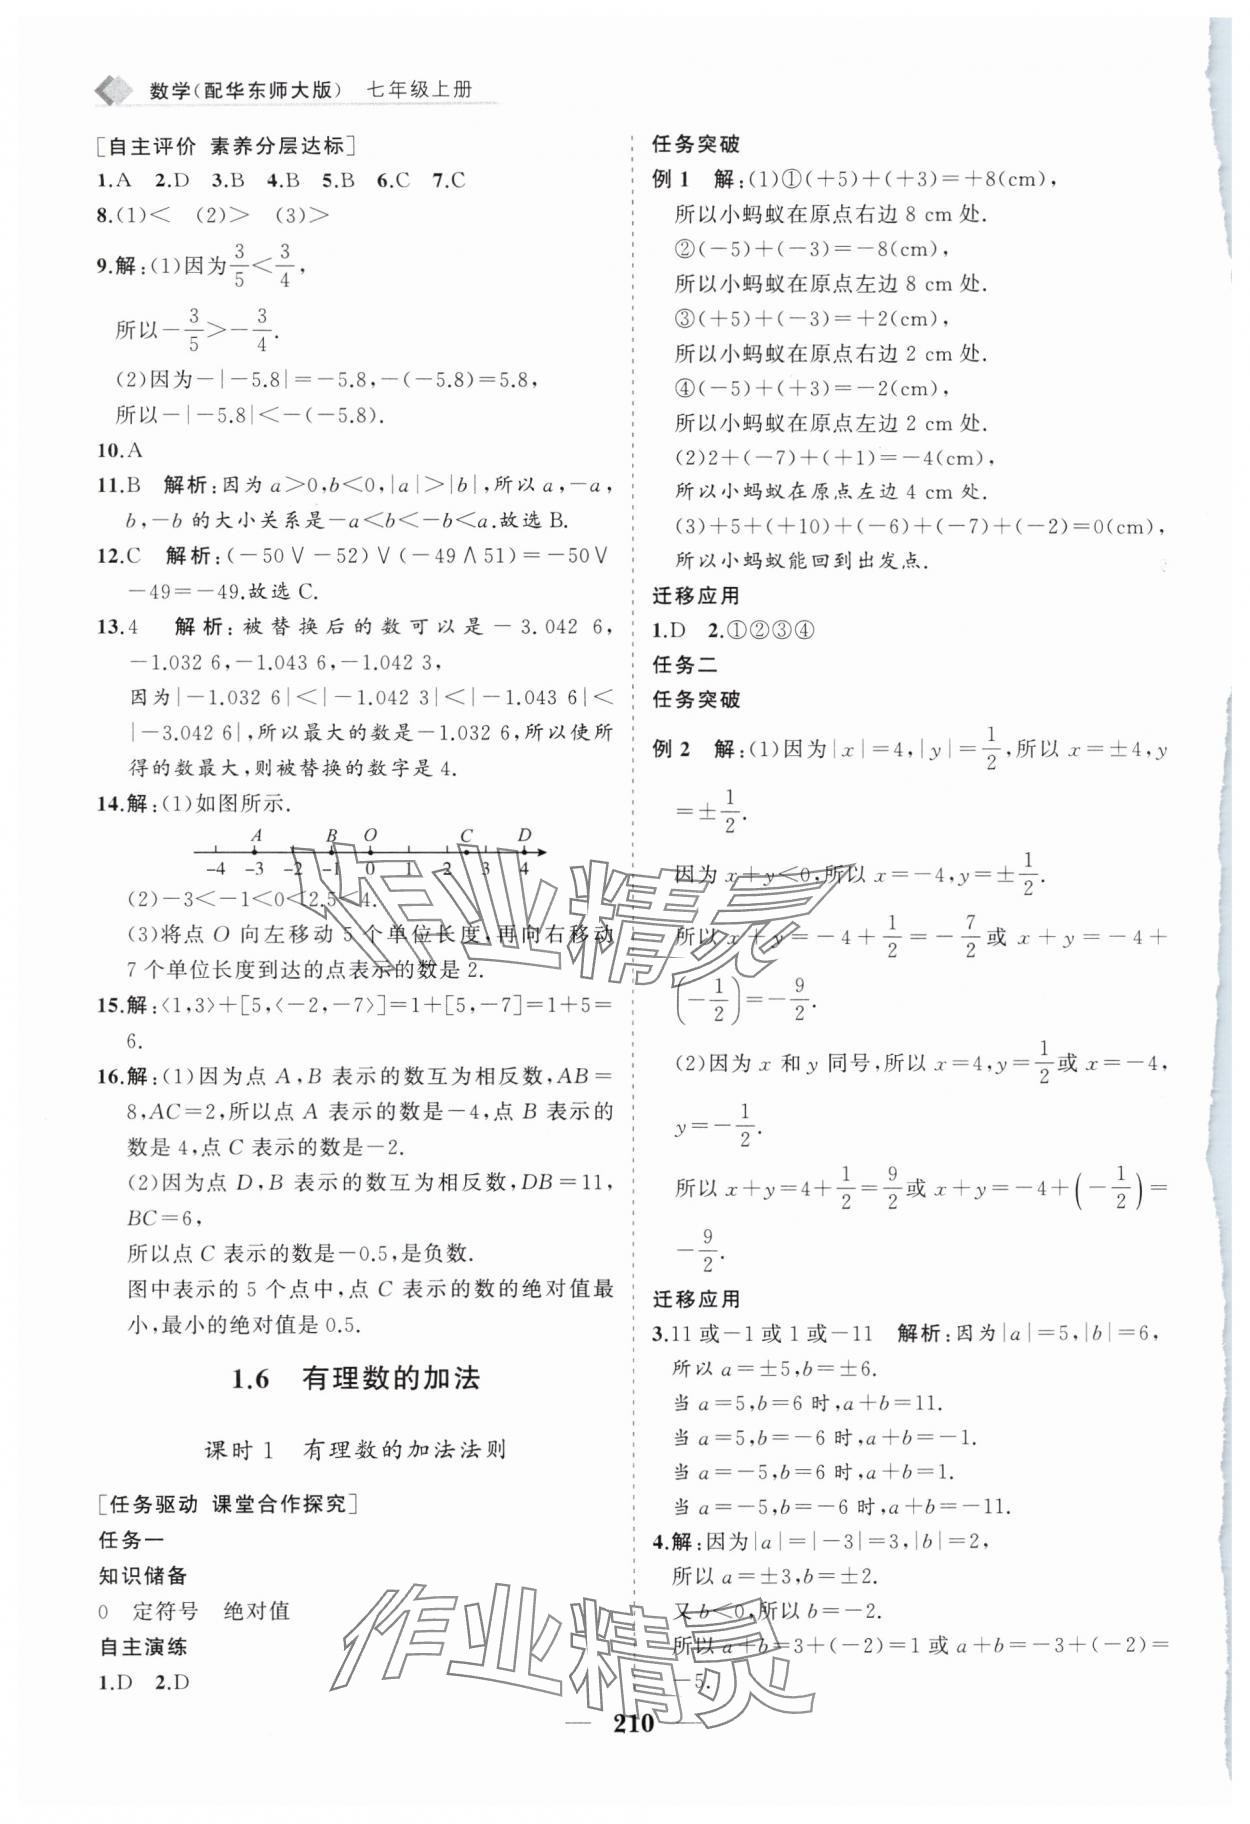 数学(配华东师大版) 七年级上册
[自主评价 素养分层达标]
1.A 2.D 3.B 4.B 5.B 6.C 7.C
8.(1)< (2)> (3)>
9.解:(1)因为3/5<3/4,
所以-3/5>-3/4.
(2)因为-|-5.8|=-5.8,-(-5.8)=5.8,
所以-|-5.8|<-(-5.8).
10.A
11.B 解析:因为a>0,b<0,|a|>|b|,所以a,-a,
b,-b的大小关系是-a<b<-b<a.故选B.
12.C 解析:(-50∨-52)∨(-49∧51)=-50∨
-49=-49.故选C.
13.4 解析:被替换后的数可以是-3.042 6,
-1.032 6,-1.043 6,-1.042 3,
因为|-1.032 6|<|-1.042 3|<|-1.043 6|<
|-3.042 6|,所以最大的数是-1.032 6,所以使所
得的数最大,则被替换的数字是4.
14.解:(1)如图所示.
A B O C D
-4 -3 -2 -1 0 1 2 3 4
(2)-3<-1<0<2.5<4.
(3)将点O向左移动5个单位长度,再向右移动
7个单位长度到达的点表示的数是2.
15.解:⟨1,3⟩+[5,⟨-2,-7⟩]=1+[5,-7]=1+5=
6.
16.解:(1)因为点A,B表示的数互为相反数,AB=
8,AC=2,所以点A表示的数是-4,点B表示的
数是4,点C表示的数是-2.
(2)因为点D,B表示的数互为相反数,DB=11,
BC=6,
所以点C表示的数是-0.5,是负数.
图中表示的5个点中,点C表示的数的绝对值最
小,最小的绝对值是0.5.
1.6 有理数的加法
课时1 有理数的加法法则
[任务驱动 课堂合作探究]
任务一
知识储备
0 定符号 绝对值
自主演练
1.D 2.D
任务突破
例1 解:(1)①(+5)+(+3)=+8(cm),
所以小蚂蚁在原点右边8 cm处.
②(-5)+(-3)=-8(cm),
所以小蚂蚁在原点左边8 cm处.
③(+5)+(-3)=+2(cm),
所以小蚂蚁在原点右边2 cm处.
④(-5)+(+3)=-2(cm),
所以小蚂蚁在原点左边2 cm处.
(2)2+(-7)+(+1)=-4(cm),
所以小蚂蚁在原点左边4 cm处.
(3)+5+(+10)+(-6)+(-7)+(-2)=0(cm),
所以小蚂蚁能回到出发点.
迁移应用
1.D 2.①②③④
任务二
任务突破
例2 解:(1)因为|x|=4,|y|=1/2,所以x=±4,y
=±1/2.
因为x+y<0,所以x=-4,y=±1/2.
所以x+y=-4+1/2=-7/2或x+y=-4+
(-1/2)=-9/2.
(2)因为x和y同号,所以x=4,y=1/2或x=-4,
y=-1/2.
所以x+y=4+1/2=9/2或x+y=-4+(-1/2)=
-9/2.
迁移应用
3.11或-1或1或-11 解析:因为|a|=5,|b|=6,
所以a=±5,b=±6.
当a=5,b=6时,a+b=11.
当a=5,b=-6时,a+b=-1.
当a=-5,b=6时,a+b=1.
当a=-5,b=-6时,a+b=-11.
4.解:因为|a|=|-3|=3,|b|=2,
所以a=±3,b=±2.
又b<0,所以b=-2.
所以a+b=3+(-2)=1或a+b=-3+(-2)=
-5.
210
作业精灵
作业精灵